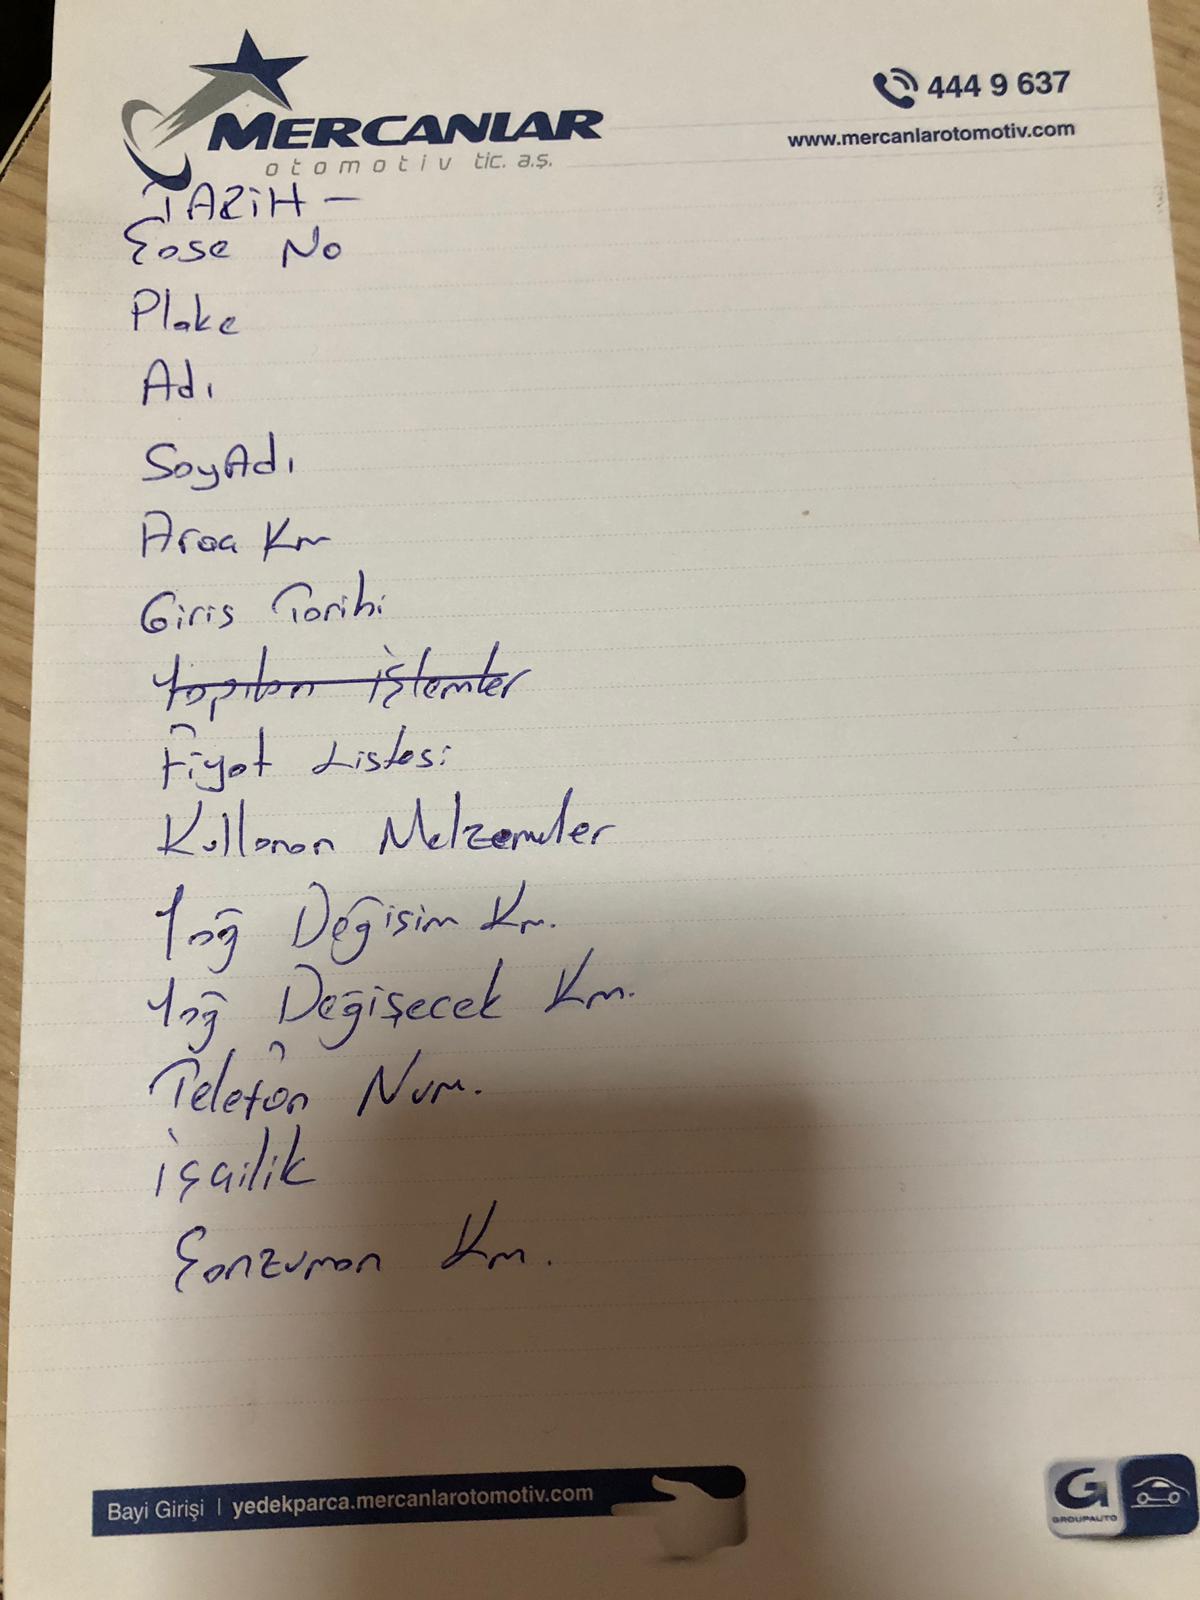 MERCANLAR
otomotiv tic. a.ş.
444 9 637
www.mercanlarotomotiv.com
TARİH -
Şase No
Plaka
Adı
SoyAdı
Araç Km
Giris Tarihi
Yapılan İşlemler
Fiyat Listesi
Kullanan Malzemeler
Yağ Değisim Km.
Yağ Değişecek Km.
Telefon Num.
işçilik
Şanzuman Km.
Bayi Girişi | yedekparca.mercanlarotomotiv.com
G
GROUPAUTO